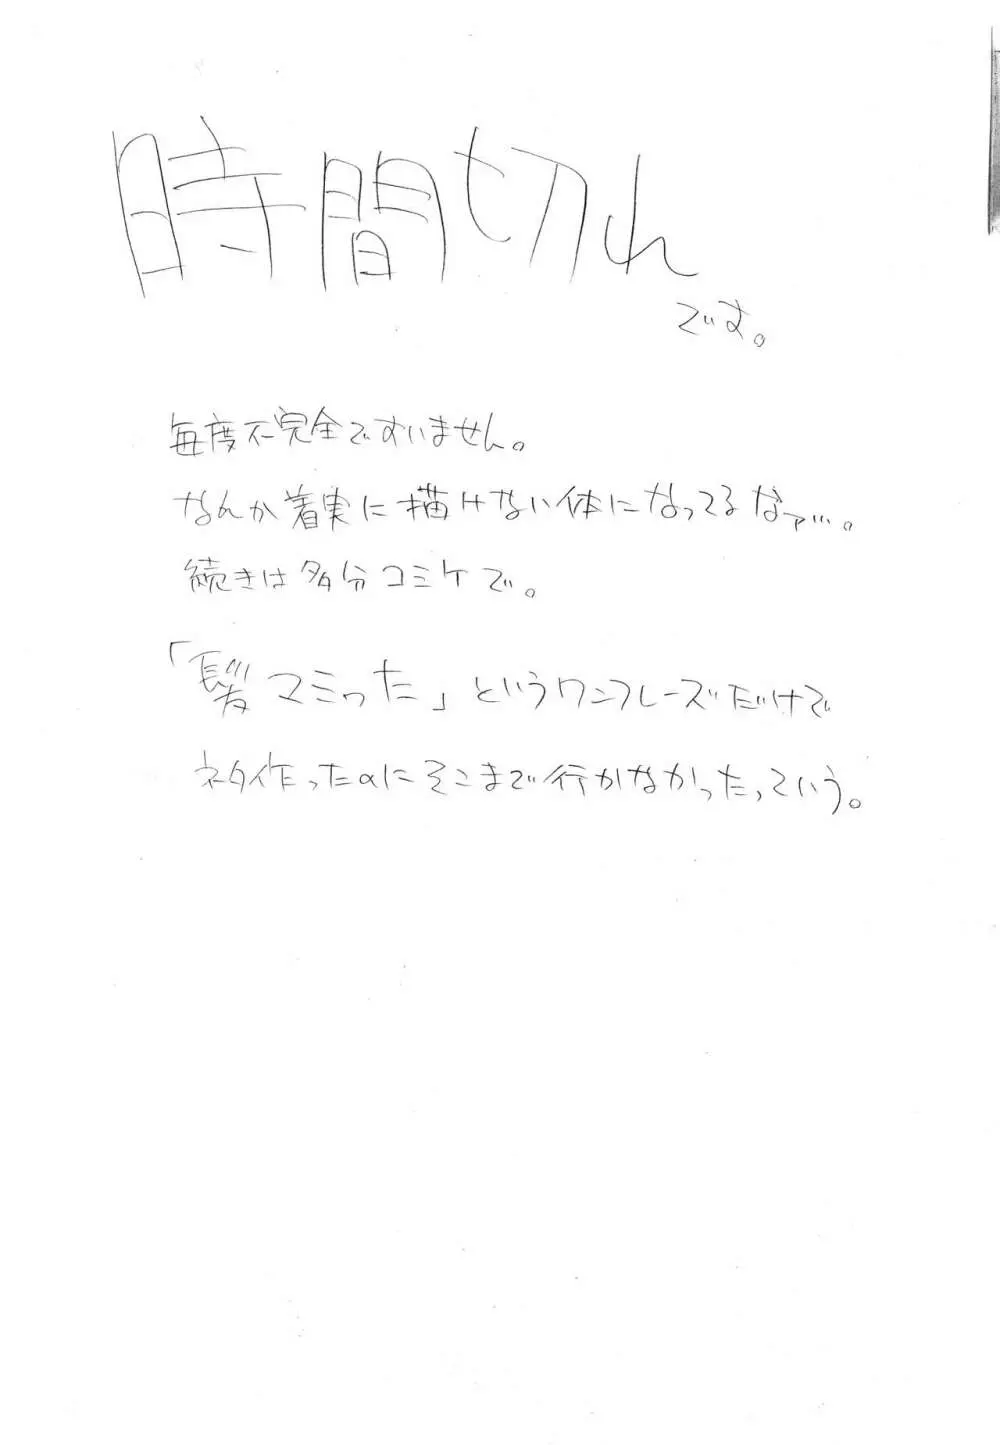 時間切れ
です。
毎度不完全ですいません。
なんか着実に描けない体になってるなァ…。
続きは多分コミケで。
「髪マミった」というワンフレーズだけで
ネタ作ったのにそこまで行かなかったっていう。